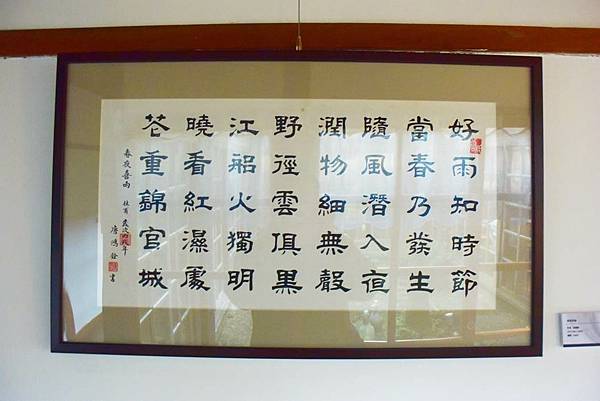 好雨知時節
當春乃發生
隨風潛入夜
潤物細無聲
野徑雲俱黑
江船火獨明
曉看紅濕處
花重錦官城
春夜喜雨 杜甫 歲次丙戌年